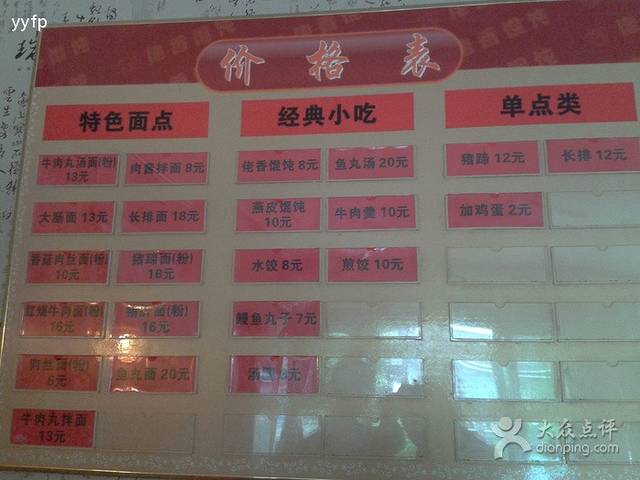 yyfp
价格表
特色面点
经典小吃
单点类
牛肉丸汤面(粉)
13元
肉酱拌面 8元
佬香馄饨 8元
鱼丸汤 20元
猪蹄 12元
长排 12元
大肠面 13元
长排面 18元
燕皮馄饨
10元
牛肉羹 10元
加鸡蛋 2元
香菇肉丝面(粉)
10元
猪蹄面(粉)
18元
水饺 8元
煎饺 10元
红烧牛肉面(粉)
16元
面(粉)
16元
鳗鱼丸子 7元
肉丝面(粉)
6元
鱼丸面 20元
汤圆
牛肉丸拌面
13元
大众点评
dianping.com